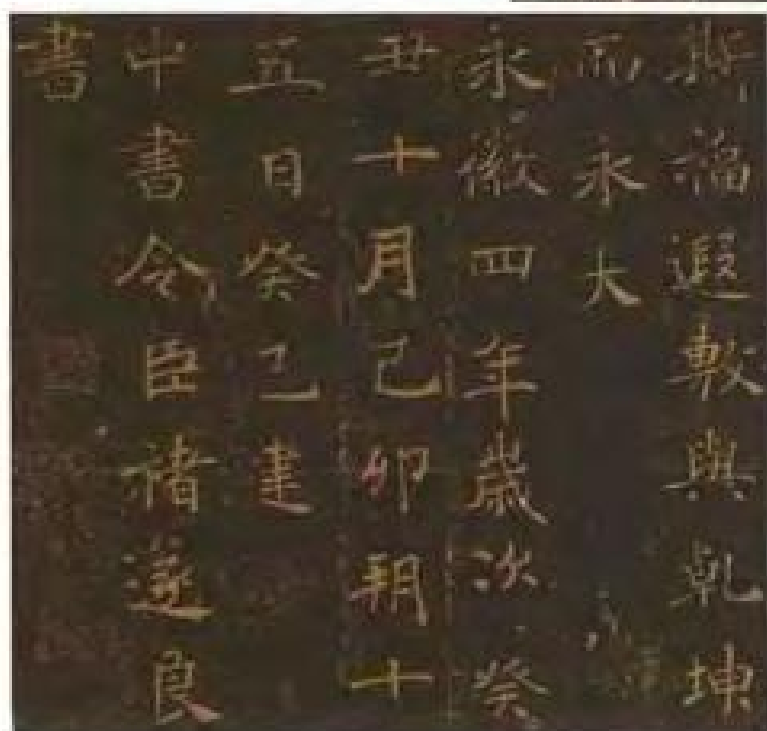 斯福遐敷與乹坤
而永大
永徽四年歲次癸
丑十月己卯朔十
五日癸巳建
中書令臣褚遂良
書